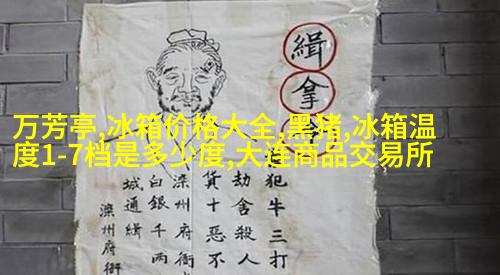 万芳亭,冰箱价格大全,黑猪,冰箱温
度1-7档是多少度,大连商品交易所
緝拿
犯牛三打
劫舍殺人
貨十惡不
滦州府衙
白銀千两
城通緝
滦州府衙